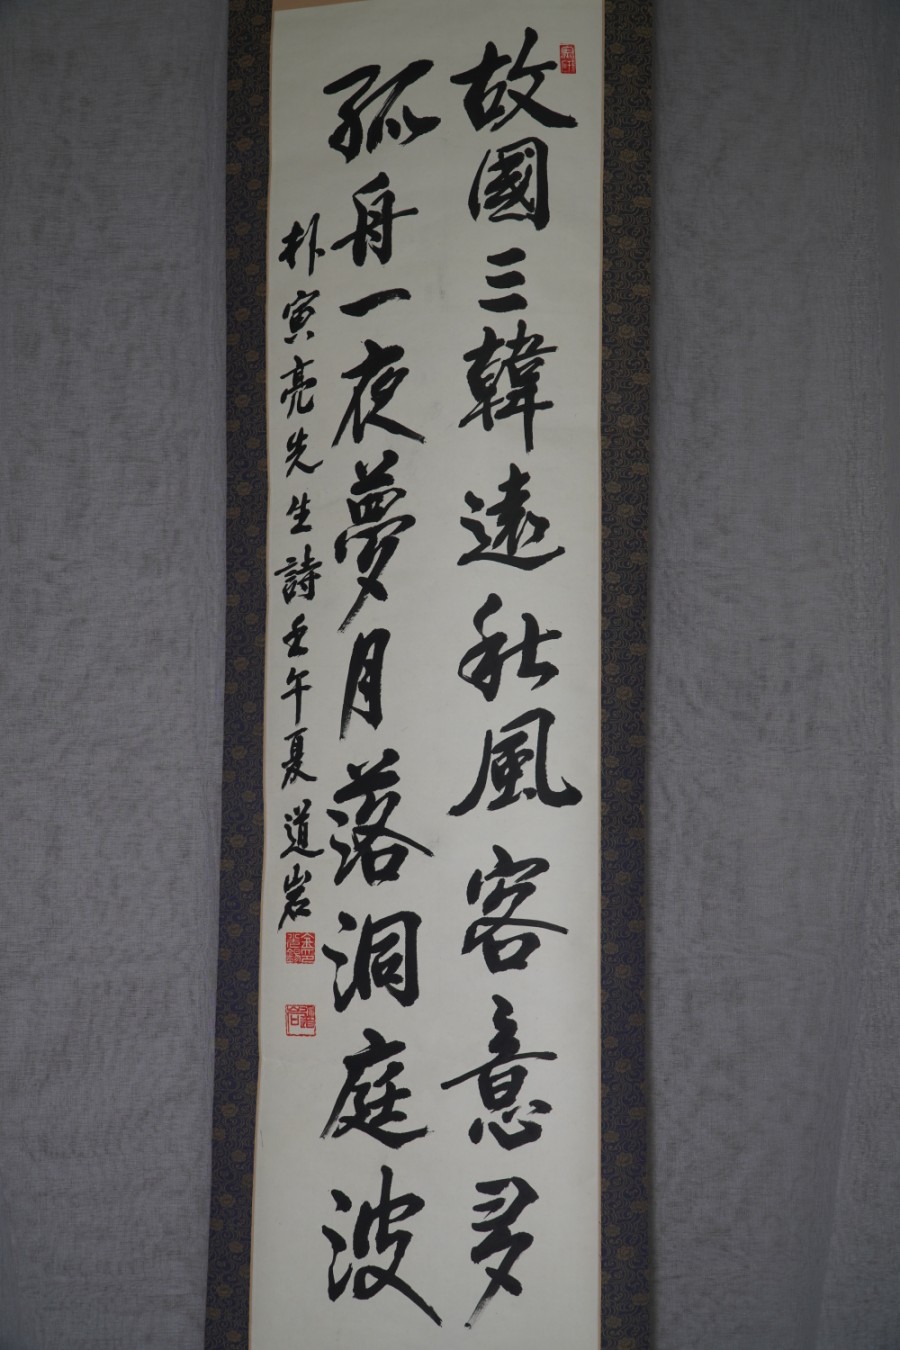 故國三韓遠秋風客意多
孤舟一夜夢月落洞庭波
朴寅亮先生詩壬午夏道岩